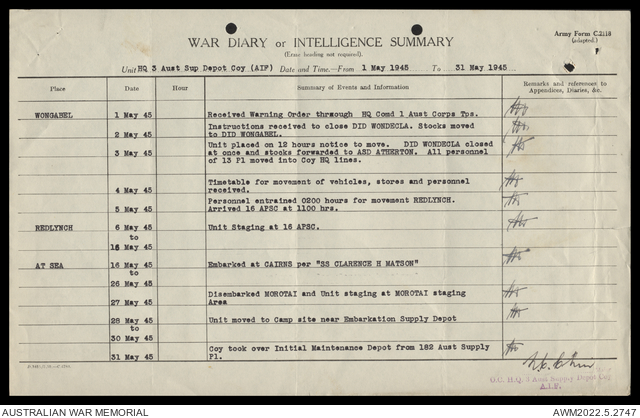 Army Form C.2118
(adapted.)
WAR DIARY or INTELLIGENCE SUMMARY
(Erase heading not required).
Unit HQ 3 Aust Sup Depot Coy (AIF) Date and Time.—From 1 May 1945 To 31 May 1945
Place Date Hour Summary of Events and Information Remarks and references to
Appendices, Diaries, &c.
WONGABEL 1 May 45 Received Warning Order through HQ Comd 1 Aust Corps Tps.
Instructions received to close DID WONDECLA. Stocks moved
2 May 45 to DID WONGABEL.
Unit placed on 12 hours notice to move. DID WONDECLA closed
3 May 45 at once and stocks forwarded to ASD ATHERTON. All personnel
of 13 Pl moved into Coy HQ lines.
Timetable for movement of vehicles, stores and personnel
4 May 45 received.
Personnel entrained 0200 hours for movement REDLYNCH.
5 May 45 Arrived 16 APSC at 1100 hrs.
REDLYNCH 6 May 45 Unit Staging at 16 APSC.
to
15 May 45
AT SEA 16 May 45 Embarked at CAIRNS per "SS CLARENCE H MATSON"
to
26 May 45
Disembarked MOROTAI and Unit staging at MOROTAI staging
27 May 45 Area
28 May 45 Unit moved to Camp site near Embarkation Supply Depot
to
30 May 45
Coy took over Initial Maintenance Depot from 182 Aust Supply
31 May 45 Pl.
O.C. H.Q. 3 Aust Supply Depot Coy
A.I.F.
AUSTRALIAN WAR MEMORIAL AWM2022.5.2747